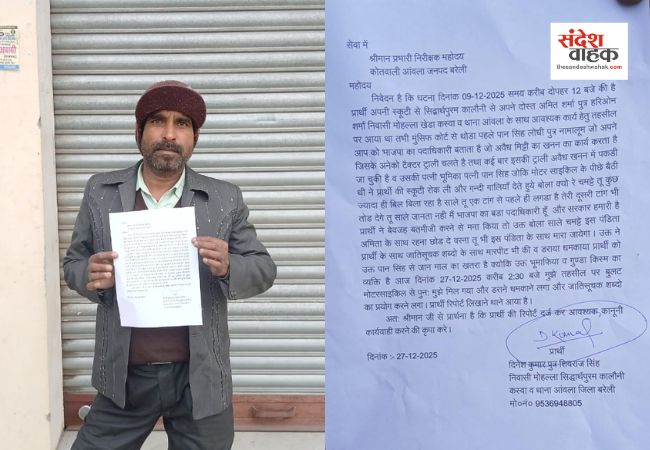 संदेश
वाहक
thesandeshwahak.com
सेवा में
श्रीमान प्रभारी निरीक्षक महोदय
कोतवाली आंवला जनपद बरेली
महोदय
निवेदन है कि घटना दिनांक 09-12-2025 समय करीब दोपहर 12 बजे की है
प्रार्थी अपनी स्कुटी से सिद्धार्थपुरम कालौनी से अपने दोस्त अमित शर्मा पुत्र हरिओम
शर्मा निवासी मोहल्ला खेडा कस्वा व थाना आंवला के साथ आवश्यक कार्य हेतु तहसील
पर आया था तभी मुंसिफ कोर्ट से थोडा पहले पान सिंह लोधी पुत्र नामालूम जो अपने
आप को भाजपा का पदाधिकारी बताता है जो अवैध मिट्टी का खनन का कार्य करता है
जिसके अनेको टेक्टर ट्राली चलते है तथा कई बार इसकी ट्राली अवैध खनन में पकडी
जा चुकी है व उसकी पत्नी भूमिका पत्नी पान सिंह जोकि मोटर साइकिल के पीछे बैठी
थी ने प्रार्थी की स्कूटी रोक ली और गन्दी गालियाँ देते हुये बोला क्यो रे चमट्टे तू कुछ
ज्यादा ही ब्रिल बिला रहा है साले तू एक टांग से पहले ही लगडा है तेरी दूसरी टांग भी
तोड देगे तू साले जानता नही मै भाजपा का बडा पदाधिकारी हूँ और सरकार हमारी है
प्रार्थी ने बेवजह बतमीजी करने से मना किया तो उक्त बोला साले चमट्टे इस पंडिता
अमिता के साथ रहना छोड दे वरना तू भी इस पंडिता के साथ मारा जायेगा। उक्त ने
प्रार्थी के साथ जातिसूचक शब्दो के साथ मारपीट भी की व डराया धमकाया प्रार्थी को
उक्त पान सिंह से जान माल का खतरा है क्योकि उक्त भूमाफिया व गुण्डा किस्म का
व्यक्ति है आज दिनांक 27-12-2025 करीब 2:30 बजे मुझे तहसील पर बुलट
मोटरसाइकिल से पुनः मुझे मिल गया और डराने धमकाने लगा और जातिसूचक शब्दो
का प्रयोग करने लगा। प्रार्थी रिपोर्ट लिखाने थाने आया है।
अतः श्रीमान जी से प्रार्थना है कि प्रार्थी की रिपोर्ट दर्ज कर आवश्यक कानूनी
कार्यवाही करने की कृपा करे।
D Kumar
प्रार्थी
दिनांक :- 27-12-2025
दिनेश कुमार पुत्र शिवराज सिंह
निवासी मोहल्ला सिद्धार्थपुरम कालौनी
कस्वा व थाना आंवला जिला बरेली
मो०नं० 9536948805